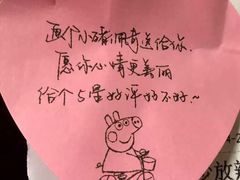 画个小猪佩奇送给你
愿你心情更美丽
给个5星好评好不好~
放辣